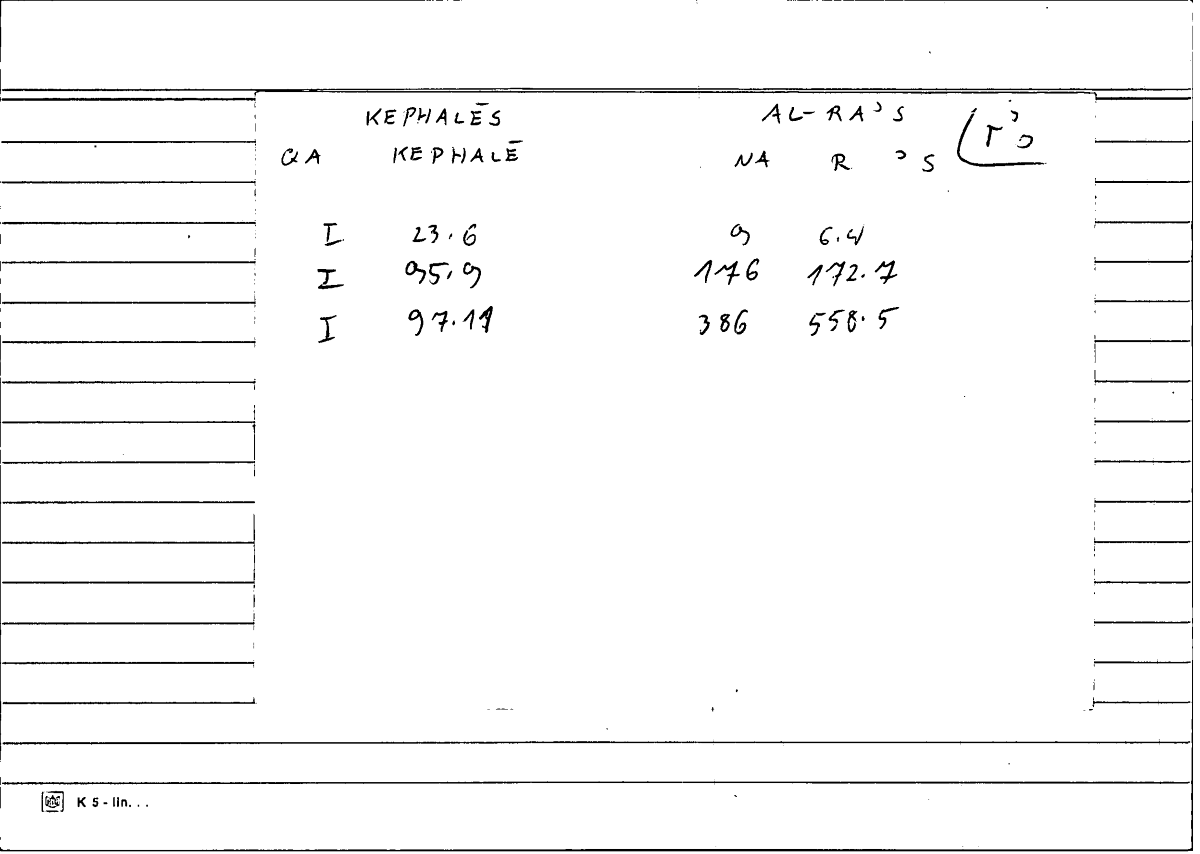 KEPHALĒS AL-RAʾS
QA KEPHALĒ NA R ʾ S
I 23.6 9 6.4
I 95.9 176 172.7
I 97.11 386 558.5
K 5 - lin. . .